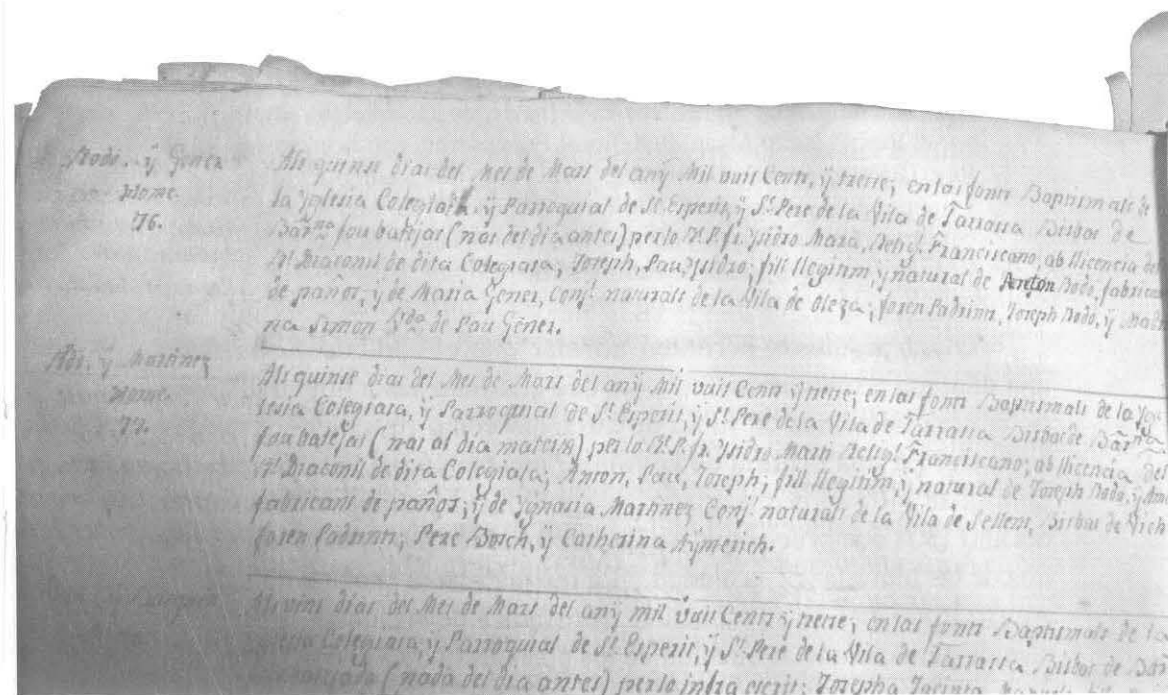 Rodó. ÿ Gener
Home.
76.
Als quinse dias del Mes de Mars del anÿ Mil vuit Cents, ÿ trese; en las fonts Baptismals de
la Yglesia Colegiata, ÿ Parroquial de St. Esperit, ÿ St. Pere de la Vila de Tarrasa Bisbat de
Barna fou batejat (nat del dia antes) per lo R. P. fr. Ysidro Martí, Religs. Franciscano, ab llicencia del
Diaconil de dita Colegiata; Joseph, Pau, Ysidro; fill llegitim, ÿ natural de Anton Rodó, fabricant
de paños, ÿ de Maria Gener, Conjs. naturals de la Vila de Oleza; foren Padrins, Joseph Rodó, ÿ
na Simon de Pau Gener.
ÿ Martinez
Home.
77.
Als quinse dias del Mes de Mars del anÿ Mil vuit Cents ÿ trese; en las fonts Baptismals de la Yg-
lesia Colegiata, ÿ Parroquial de St. Esperit, ÿ St. Pere de la Vila de Tarrasa Bisbat de Barna
fou batejat (nat al dia mateix) per lo R. P. fr. Ysidro Martí Religs. Franciscano; ab llicencia del
Diaconil de dita Colegiata; Anton, Pau, Joseph; fill llegitim, ÿ natural de Joseph
fabricant de paños; ÿ de Ygnasia Martinez Conjs. naturals de la Vila de Sellent, Bisbat de Vich
foren Padrins, Pere Bosch, ÿ Catherina Aÿmerich.
Als vint dias del Mes de Mars del anÿ mil vuit Cents ÿ trese; en las fonts Baptismals de la
Colegiata, ÿ Parroquial de St. Esperit, ÿ St. Pere de la Vila de Tarrasa Bisbat de
(nada del dia antes) per lo infra escrit; Josepha Jacinta